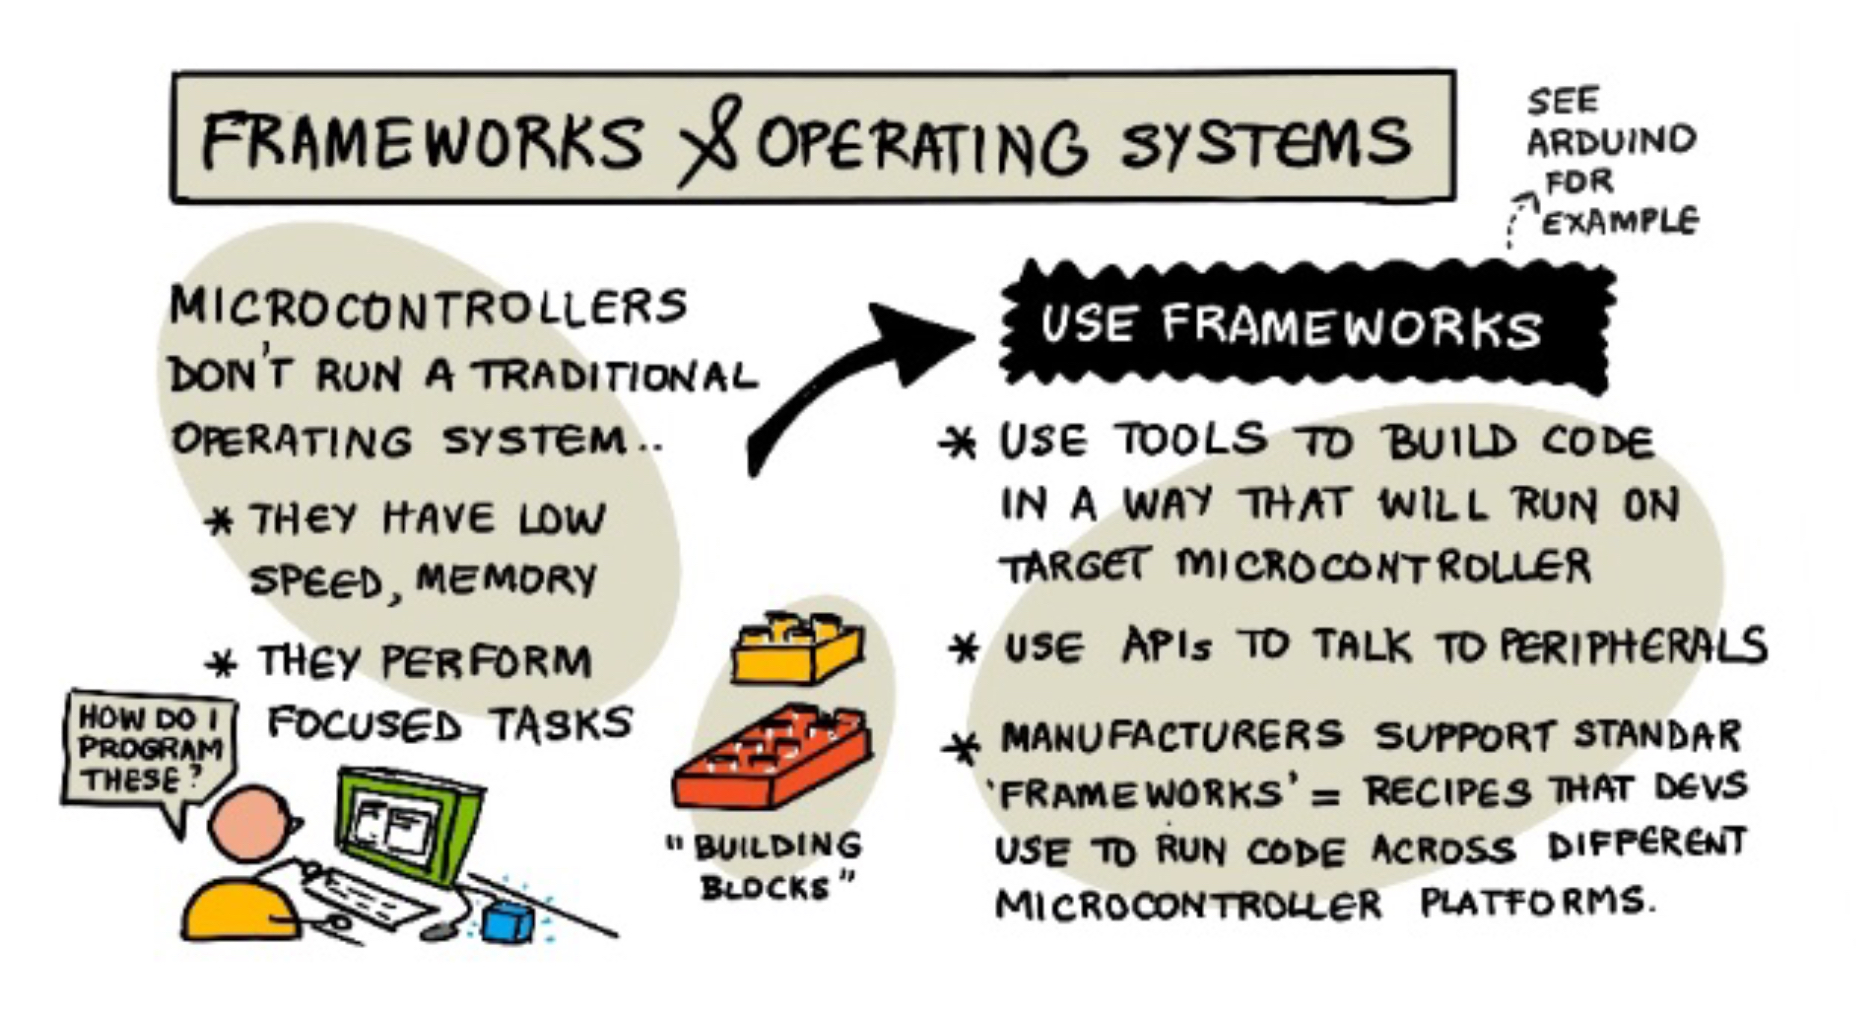 FRAMEWORKS & OPERATING SYSTEMS
SEE
ARDUINO
FOR
EXAMPLE
MICROCONTROLLERS
DON'T RUN A TRADITIONAL
OPERATING SYSTEM..
* THEY HAVE LOW
SPEED, MEMORY
* THEY PERFORM
FOCUSED TASKS
HOW DO I
PROGRAM
THESE?
"BUILDING
BLOCKS"
USE FRAMEWORKS
* USE TOOLS TO BUILD CODE
IN A WAY THAT WILL RUN ON
TARGET MICROCONTROLLER
* USE APIs TO TALK TO PERIPHERALS
* MANUFACTURERS SUPPORT STANDAR
'FRAMEWORKS' = RECIPES THAT DEVS
USE TO RUN CODE ACROSS DIFFERENT
MICROCONTROLLER PLATFORMS.